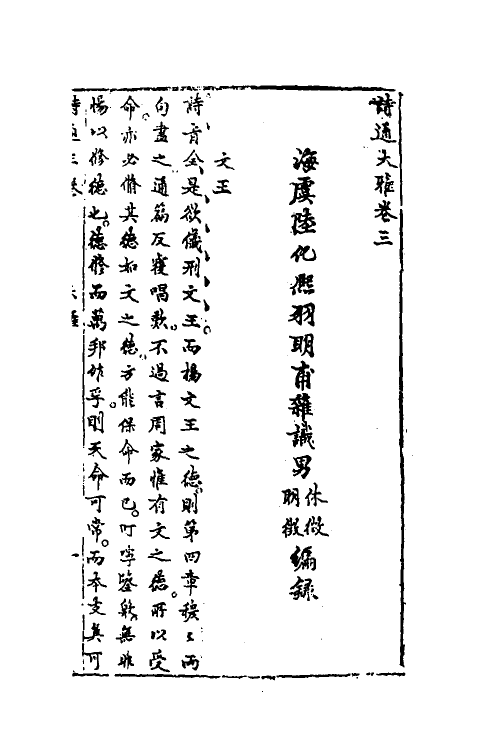 詩通大雅卷三
海虞陸化熙羽明甫雜識男 休徵 明徵 編錄
文王
詩旨全是欲儀刑文王而揚文王之德則第四章穆穆兩
句盡之通篇反覆唱歎不過言周家惟有文之德所以受
命亦必脩其德如文之德方能保命而已叮嚀鑒戒無非
惕以修德也德修而萬邦作孚則天命可常而本支真可
詩通三卷 大雅 一